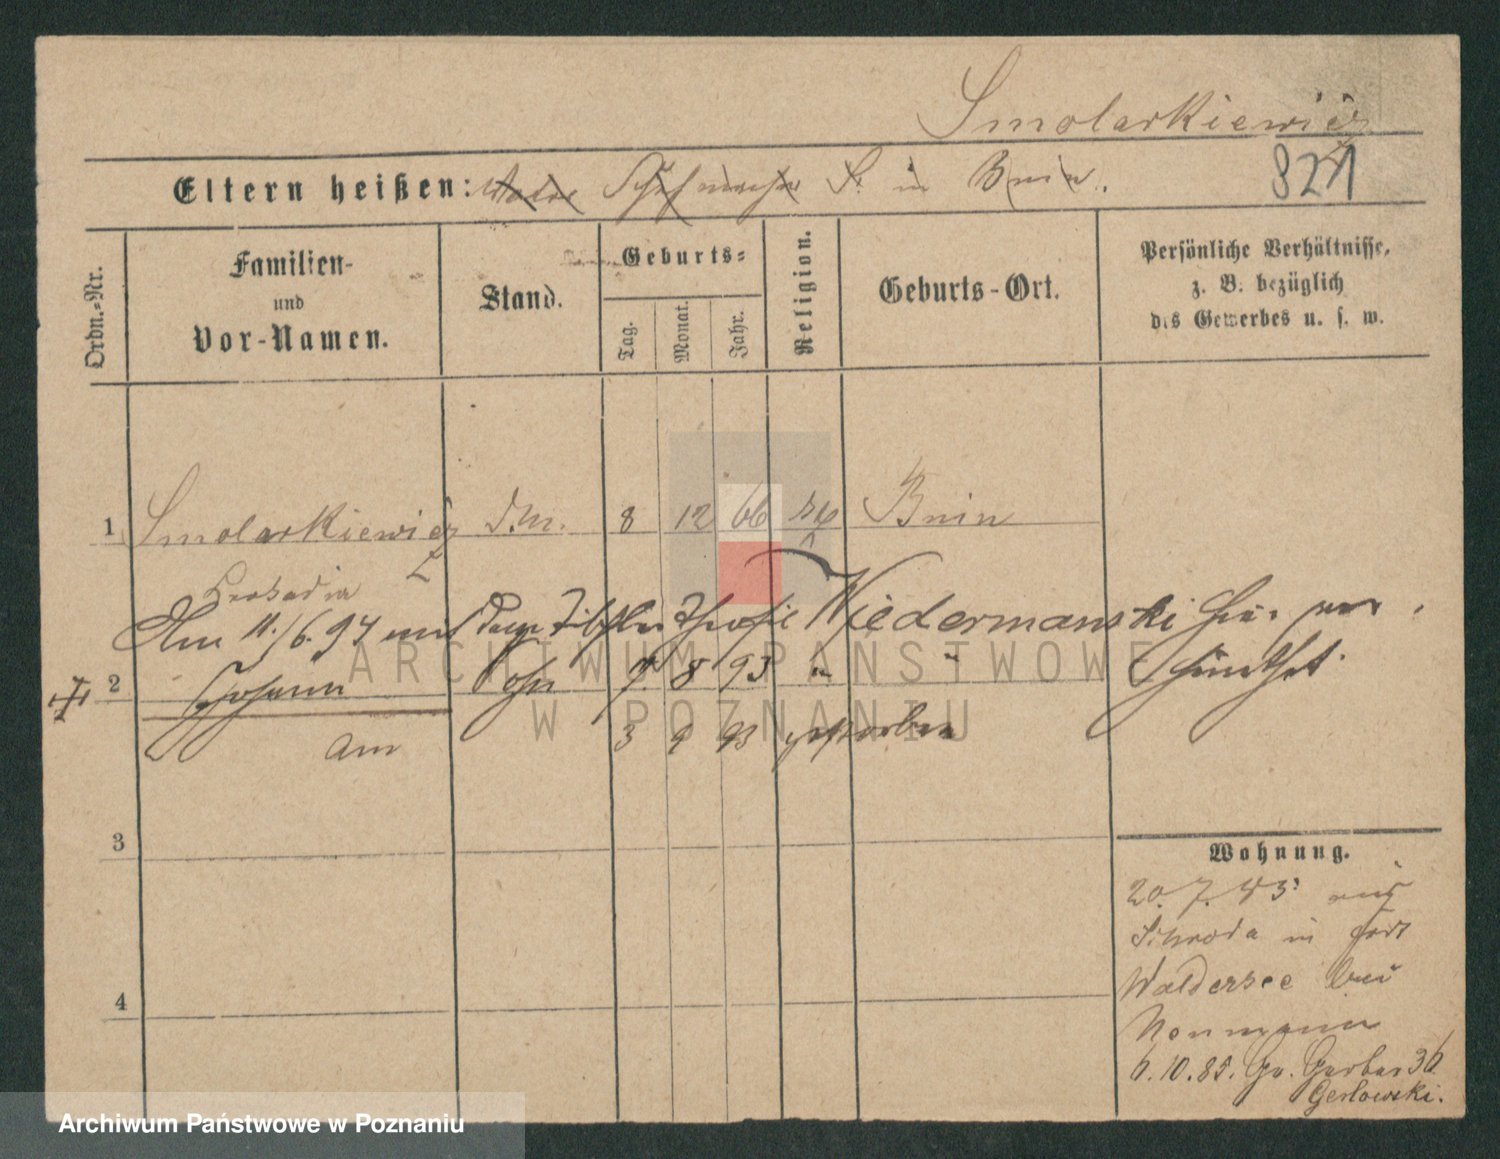 Smolarkiewicz
Eltern heißen: Schuhmacher S. in Bnin.
821
Ordn.-Nr.
Familien-
und
Vor-Namen.
Stand.
Geburts-
Tag.
Monat.
Jahr.
Religion.
Geburts-Ort.
Persönliche Verhältnisse,
z. B. bezüglich
des Gewerbes u. s. w.
1 Smolarkiewicz d.M. 8 12 66 Bnin
Am 11./6. 94 mit dem Niedermanski
2 Johann Sohn 7. 8 93 "
am 3 9 93 gestorben
3
4
Wohnung.
20. 7. 85 aus
Schroda in Fort
Waldersee bei
6. 10. 85. Gr. Gerber 36
Gerlowski.
ARCHIWUM PAŃSTWOWE
W POZNANIU
Archiwum Państwowe w Poznaniu